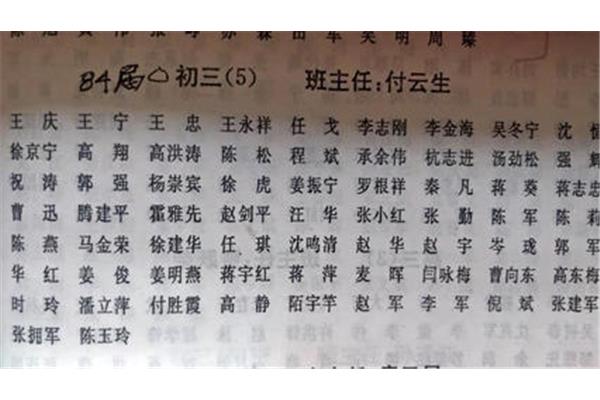 84届 初三(5) 班主任:付云生
王庆 王宁 王忠 王永祥 任戈 李志刚 李金海 吴冬宁 沈恒
徐京宁 高翔 高洪涛 陈松 程斌 承余伟 杭志进 汤劲松 强辉
祝涛 郭强 杨崇宾 徐虎 姜振宁 罗根祥 秦凡 蒋葵 蒋志
曹迅 腾建平 霍雅先 赵剑平 汪华 张小红 张勤 陈军 陈莉
陈燕 马金荣 徐建华 任琪 沈鸣清 赵华 赵宇 岑珑 郭军
华红 姜俊 姜明燕 蒋宇红 蒋萍 麦晖 闫咏梅 曹向东 高东梅
时玲 潘立萍 付胜霞 高静 陌宇竿 赵军 李军 倪斌 张建军
张拥军 陈玉玲